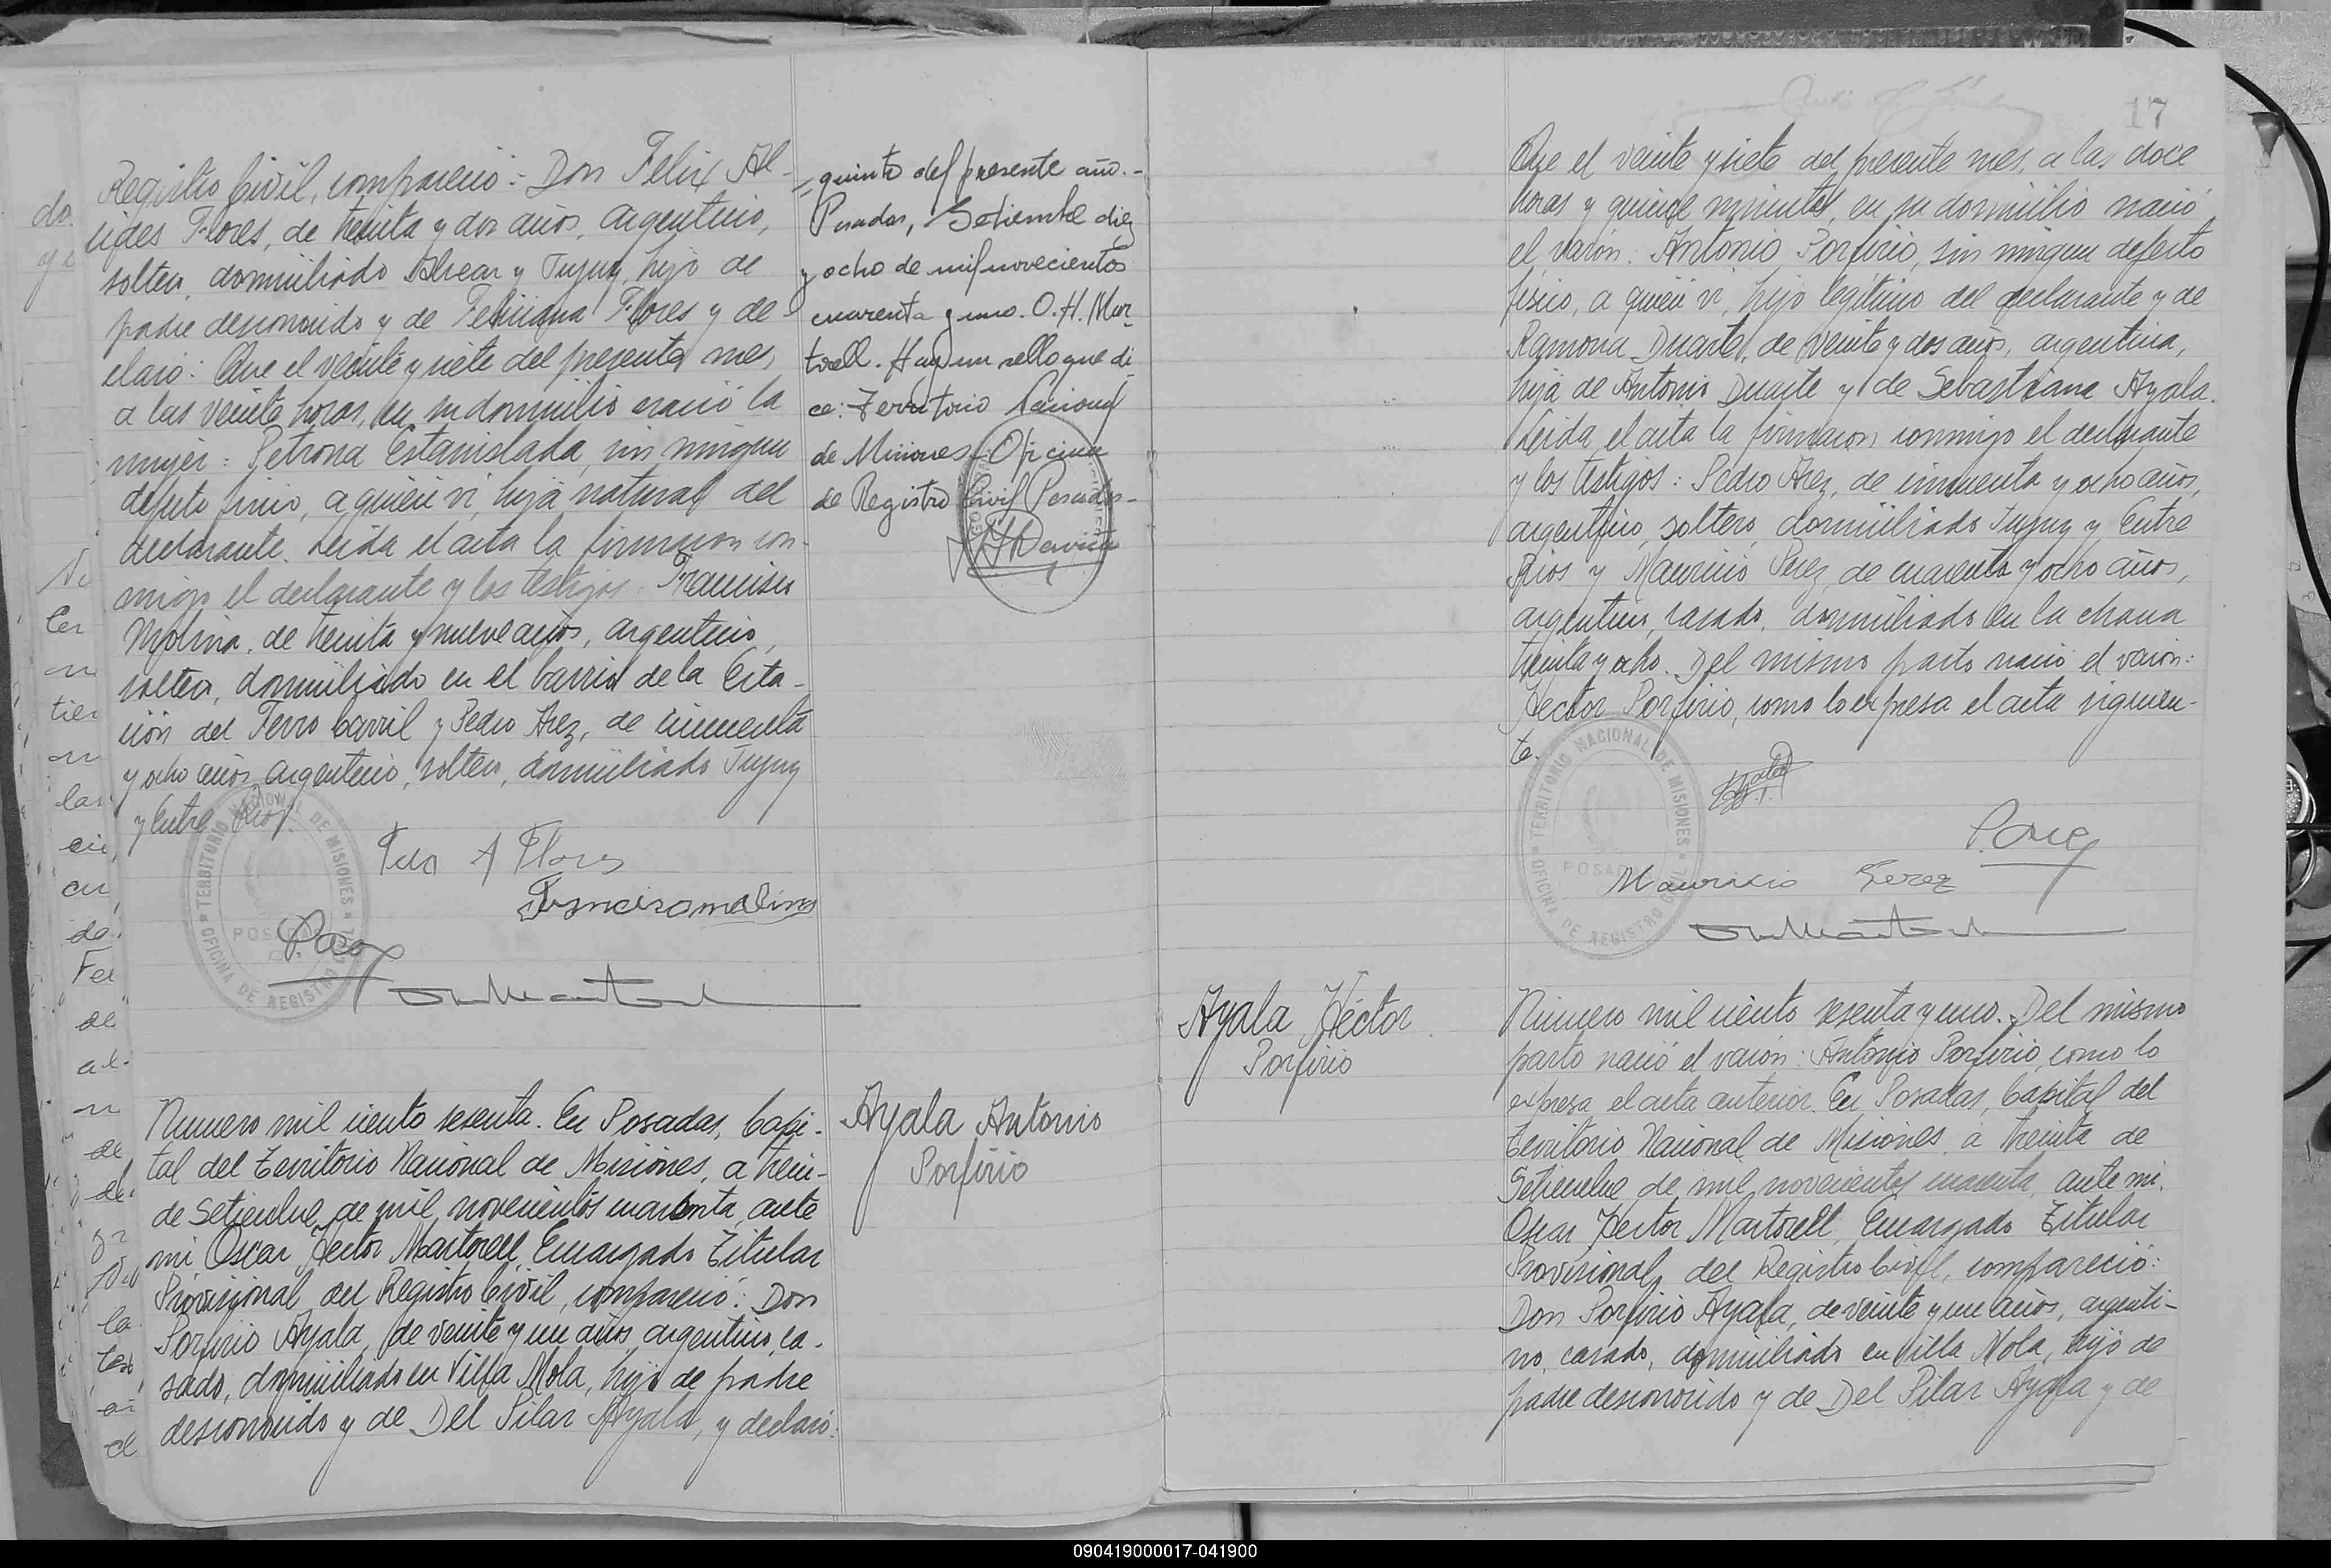 Registro Civil, compareció: Don Felix Al-
cides Flores, de treinta y dos años, argentino,
soltero, domiciliado Alvear y Jujuy, hijo de
padre desconocido y de Feliciana Flores y de
claró: Que el veinte y siete del presente mes,
a las veinte horas, en su domicilio nació la
mujer: Petrona Estanislada, sin ningun
defecto fisico, a quien vi, hija natural del
declarante. Leida el acta la firmaron con-
migo el declarante y los testigos: Francisco
Molina, de treinta y nueve años, argentino,
soltero, domiciliado en el barrio de la Esta-
ción del Ferro Carril y Pedro Arez, de cincuenta
y ocho años, argentino, soltero, domiciliado Jujuy
y Entre Rios.
TERRITORIO NACIONAL DE MISIONES
OFICINA DE REGISTRO CIVIL
POSADAS
A Flores
Francisco molina
Numero mil ciento sesenta. En Posadas, Capi-
tal del Territorio Nacional de Misiones, a trein-
de Setiembre de mil novecientos cuarenta, ante
mi Oscar Hector Martorell, Encargado Titular
Provisional del Registro Civil, compareció: Don
Porfirio Ayala, de veinte y un años, argentino, ca-
sado, domiciliado en Villa Mola, hijo de padre
desconocido y de Del Pilar Ayala, y declaró:
quinto del presente año.-
Posadas, Setiembre diez
y ocho de mil novecientos
cuarenta y uno. O. H. Mar-
torell. Hay un sello que di-
ce: Territorio Nacional
de Misiones - Oficina
de Registro Civil Posadas-
Ayala Antonio
Porfirio
17
Que el veinte y siete del presente mes, a las doce
horas y quince minutos, en su domicilio nació
el varón: Antonio Porfirio, sin ningun defecto
fisico, a quien vi, hijo legitimo del declarante y de
Ramona Duarte, de veinte y dos años, argentina,
hija de Antonio Duarte y de Sebastiana Ayala.
Leida el acta la firmaron conmigo el declarante
y los testigos: Pedro Arez, de cincuenta y ocho años,
argentino, soltero, domiciliado Jujuy y Entre
Rios y Mauricio Perez, de cuarenta y ocho años,
argentino, casado, domiciliado en la chacra
treinta y ocho. Del mismo parto nació el varón:
Hector Porfirio, como lo expresa el acta siguien-
te.
TERRITORIO NACIONAL DE MISIONES
OFICINA DE REGISTRO CIVIL
POSADAS
P. Arez
Mauricio Perez
Ayala Héctor
Porfirio
Numero mil ciento sesenta y uno. Del mismo
parto nació el varón: Antonio Porfirio, como lo
expresa el acta anterior. En Posadas, Capital del
Territorio Nacional de Misiones, a treinta de
Setiembre de mil novecientos cuarenta, ante mi,
Oscar Hector Martorell, Encargado Titular
Provisional, del Registro Civil, compareció:
Don Porfirio Ayala, de veinte y un años, argenti-
no, casado, domiciliado en Villa Mola, hijo de
padre desconocido y de Del Pilar Ayala y de
090419000017-041900